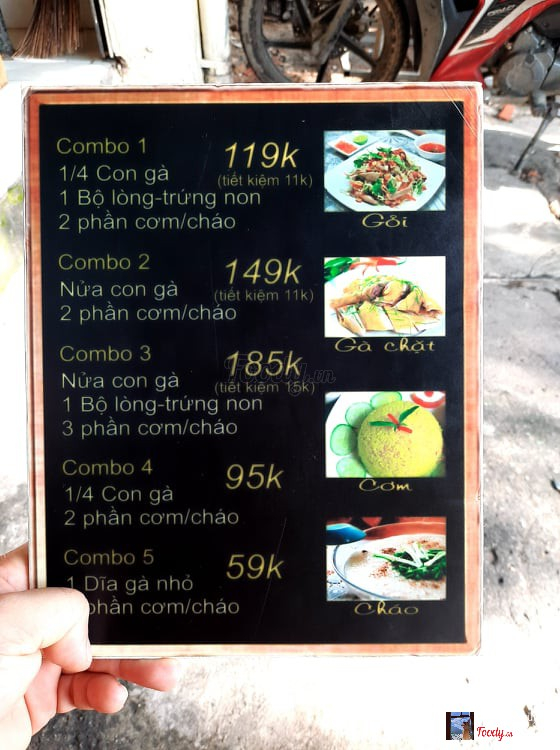 Combo 1
119k
1/4 Con gà
(tiết kiệm 11k)
1 Bộ lòng-trứng non
2 phần cơm/cháo
Gỏi
Combo 2
149k
Nửa con gà
(tiết kiệm 11k)
2 phần cơm/cháo
Gà chặt
Combo 3
185k
Nửa con gà
(tiết kiệm 15k)
1 Bộ lòng-trứng non
3 phần cơm/cháo
Combo 4
95k
1/4 Con gà
2 phần cơm/cháo
Cơm
Combo 5
59k
1 Dĩa gà nhỏ
phần cơm/cháo
Cháo
Foody.vn